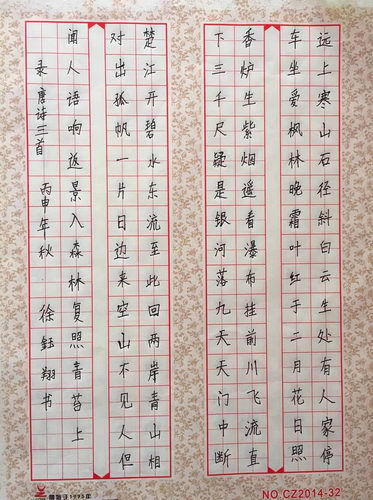 远上寒山石径斜白云生处有人家停
车坐爱枫林晚霜叶红于二月花日照
香炉生紫烟遥看瀑布挂前川飞流直
下三千尺疑是银河落九天天门中断
楚江开碧水东流至此回两岸青山相
对出孤帆一片日边来空山不见人但
闻人语响返景入森林复照青苔上
录唐诗三首 丙申年秋 徐钰翔书
NO.CZ2014-32